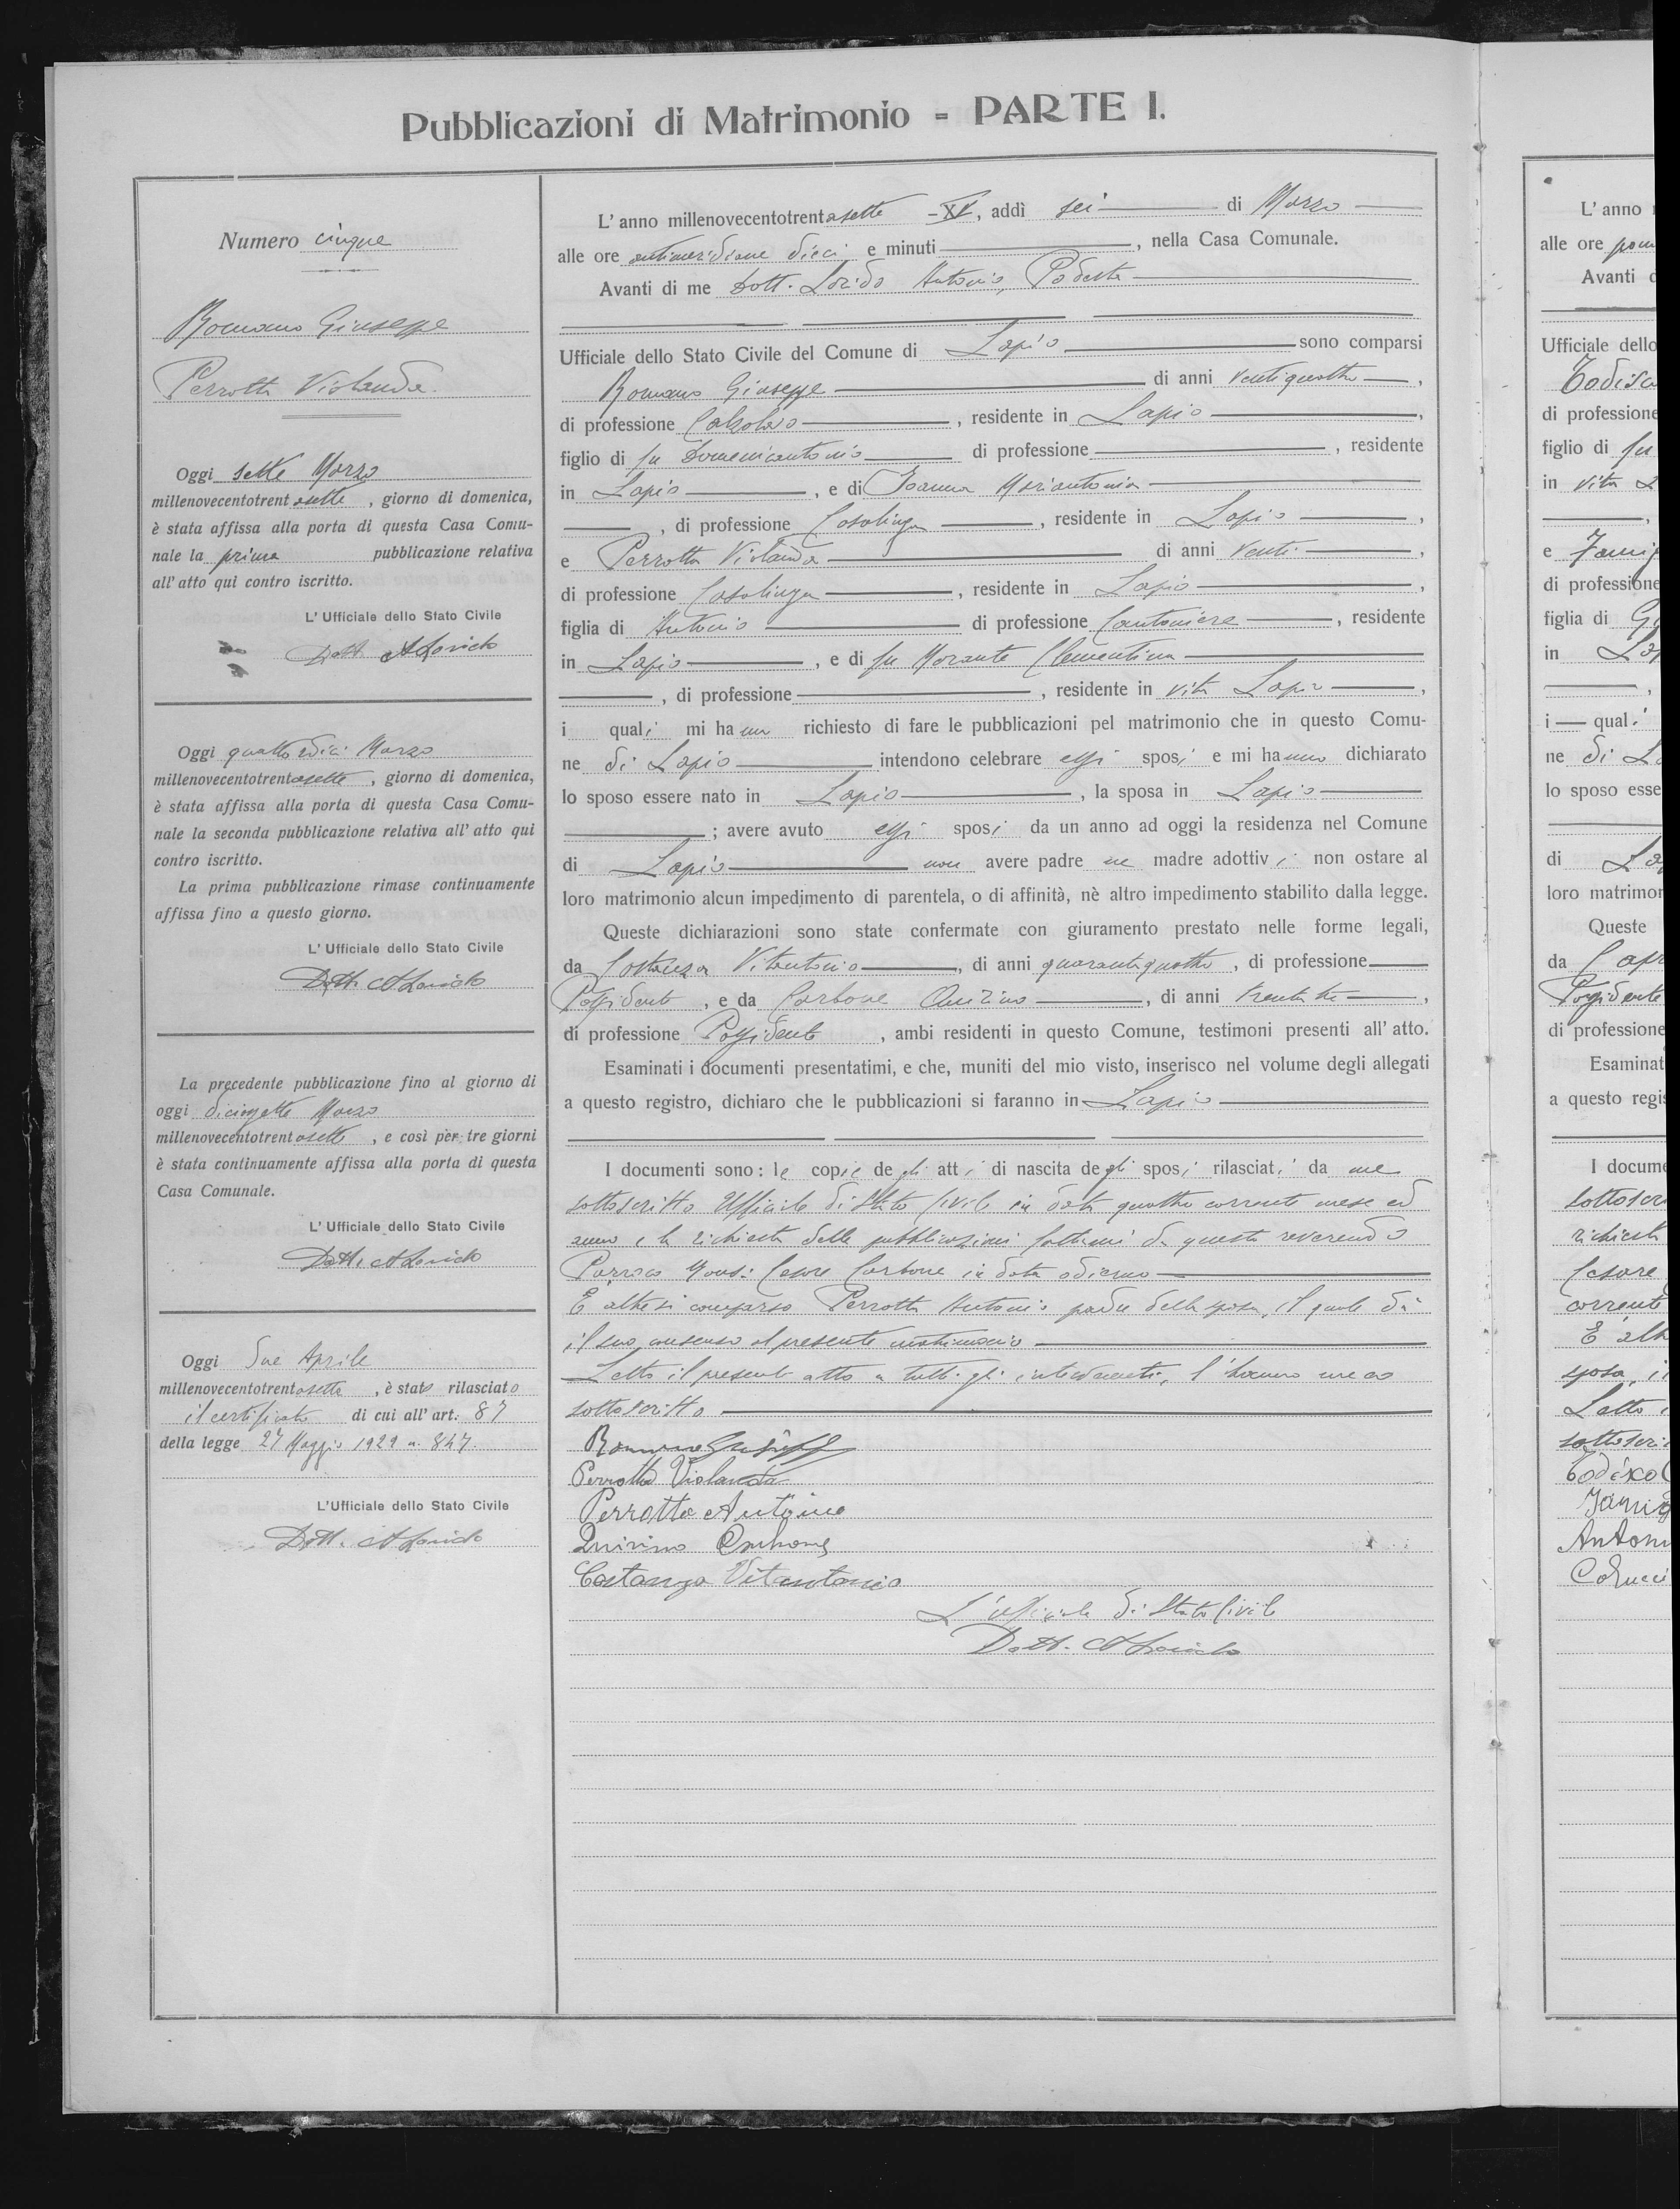 Pubblicazioni di Matrimonio - PARTE I.
Numero cinque
Romano Giuseppe
Perrotta Violanda
Oggi sette Marzo
millenovecentotrentasette, giorno di domenica,
è stata affissa alla porta di questa Casa Comu-
nale la prima pubblicazione relativa
all'atto qui contro iscritto.
L'Ufficiale dello Stato Civile
Dott.
Oggi quattordici Marzo
millenovecentotrentasette, giorno di domenica,
è stata affissa alla porta di questa Casa Comu-
nale la seconda pubblicazione relativa all'atto qui
contro iscritto.
La prima pubblicazione rimase continuamente
affissa fino a questo giorno.
L'Ufficiale dello Stato Civile
Dott.
La precedente pubblicazione fino al giorno di
oggi diciassette Marzo
millenovecentotrentasette, e così per tre giorni
è stata continuamente affissa alla porta di questa
Casa Comunale.
L'Ufficiale dello Stato Civile
Dott.
Oggi due Aprile
millenovecentotrentasette, è stato rilasciato
il certificato di cui all'art. 87
della legge 27 Maggio 1929 n. 847.
L'Ufficiale dello Stato Civile
Dott.
L'anno millenovecentotrentasette - XV, addì sei di Marzo
alle ore antimeridiane dieci e minuti , nella Casa Comunale.
Avanti di me Dott. Antonio, Podestà
Ufficiale dello Stato Civile del Comune di Lapio sono comparsi
Romano Giuseppe di anni ventiquattro,
di professione Calzolaio, residente in Lapio,
figlio di fu Domenicantonio di professione , residente
in Lapio, e di Ioanna Mariantonia
, di professione Casalinga, residente in Lapio,
e Perrotta Violanda di anni venti,
di professione Casalinga, residente in Lapio,
figlia di Antonio di professione Cantoniere, residente
in Lapio, e di fu Morante Clementina
, di professione , residente in vita Lapio,
i quali mi hanno richiesto di fare le pubblicazioni pel matrimonio che in questo Comu-
ne di Lapio intendono celebrare essi sposi e mi hanno dichiarato
lo sposo essere nato in Lapio, la sposa in Lapio
; avere avuto essi sposi da un anno ad oggi la residenza nel Comune
di Lapio non avere padre ne madre adottivi non ostare al
loro matrimonio alcun impedimento di parentela, o di affinità, nè altro impedimento stabilito dalla legge.
Queste dichiarazioni sono state confermate con giuramento prestato nelle forme legali,
da Costanza Vitantonio, di anni quarantaquattro, di professione
Possidente, e da Carbone Quirino, di anni trentatre,
di professione Possidente, ambi residenti in questo Comune, testimoni presenti all'atto.
Esaminati i documenti presentatimi, e che, muniti del mio visto, inserisco nel volume degli allegati
a questo registro, dichiaro che le pubblicazioni si faranno in Lapio
I documenti sono: le copie degli atti di nascita degli sposi rilasciati da me
sottoscritto Ufficiale di Stato Civile in data quattro corrente mese ed
anno e la richiesta delle pubblicazioni fattami da questo reverendo
Parroco Mons: Cesare Carbone in data odierna
E' altresì comparso Perrotta Antonio padre della sposa, il quale dà
il suo consenso al presente matrimonio
Letto il presente atto a tutti gli intervenuti, l'hanno meco
sottoscritto
Romano Giuseppe
Perrotta Violanda
Perrotta Antonio
Quirino Carbone
Costanza Vitantonio
L'ufficiale di Stato Civile
Dott.
L'anno
alle ore pom
Avanti
Ufficiale dello
di professione
figlio di fu
in vita
e
di professione
figlia di
in
i quali
ne di
lo sposo esse
di
loro matrimon
Queste
da
Possidente
di professione
Esaminat
a questo regis
I docume
sottoscri
richiesta
Cesare
corrente
E' alt
sposa, i
Letto
sottoscri
Antoni